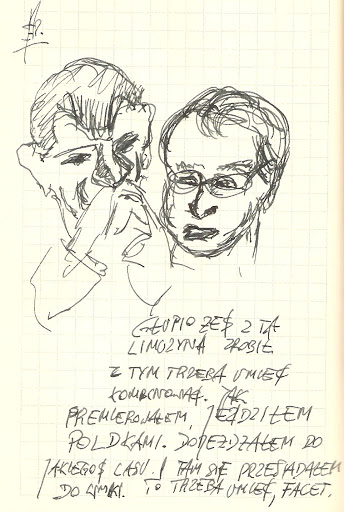 GŁUPIO ŻEŚ Z TĄ
LIMOZYNĄ ZROBIŁ
Z TYM TRZEBA UMIEĆ
KOMBINOWAĆ. JAK
PREMIEROWAŁEM, JEŹDZIŁEM
POLDKAMI. DOJEŻDŻAŁEM DO
JAKIEGOŚ LASU I TAM SIĘ PRZESIADAŁEM
DO LIMKI. TO TRZEBA UMIEĆ, FACET.